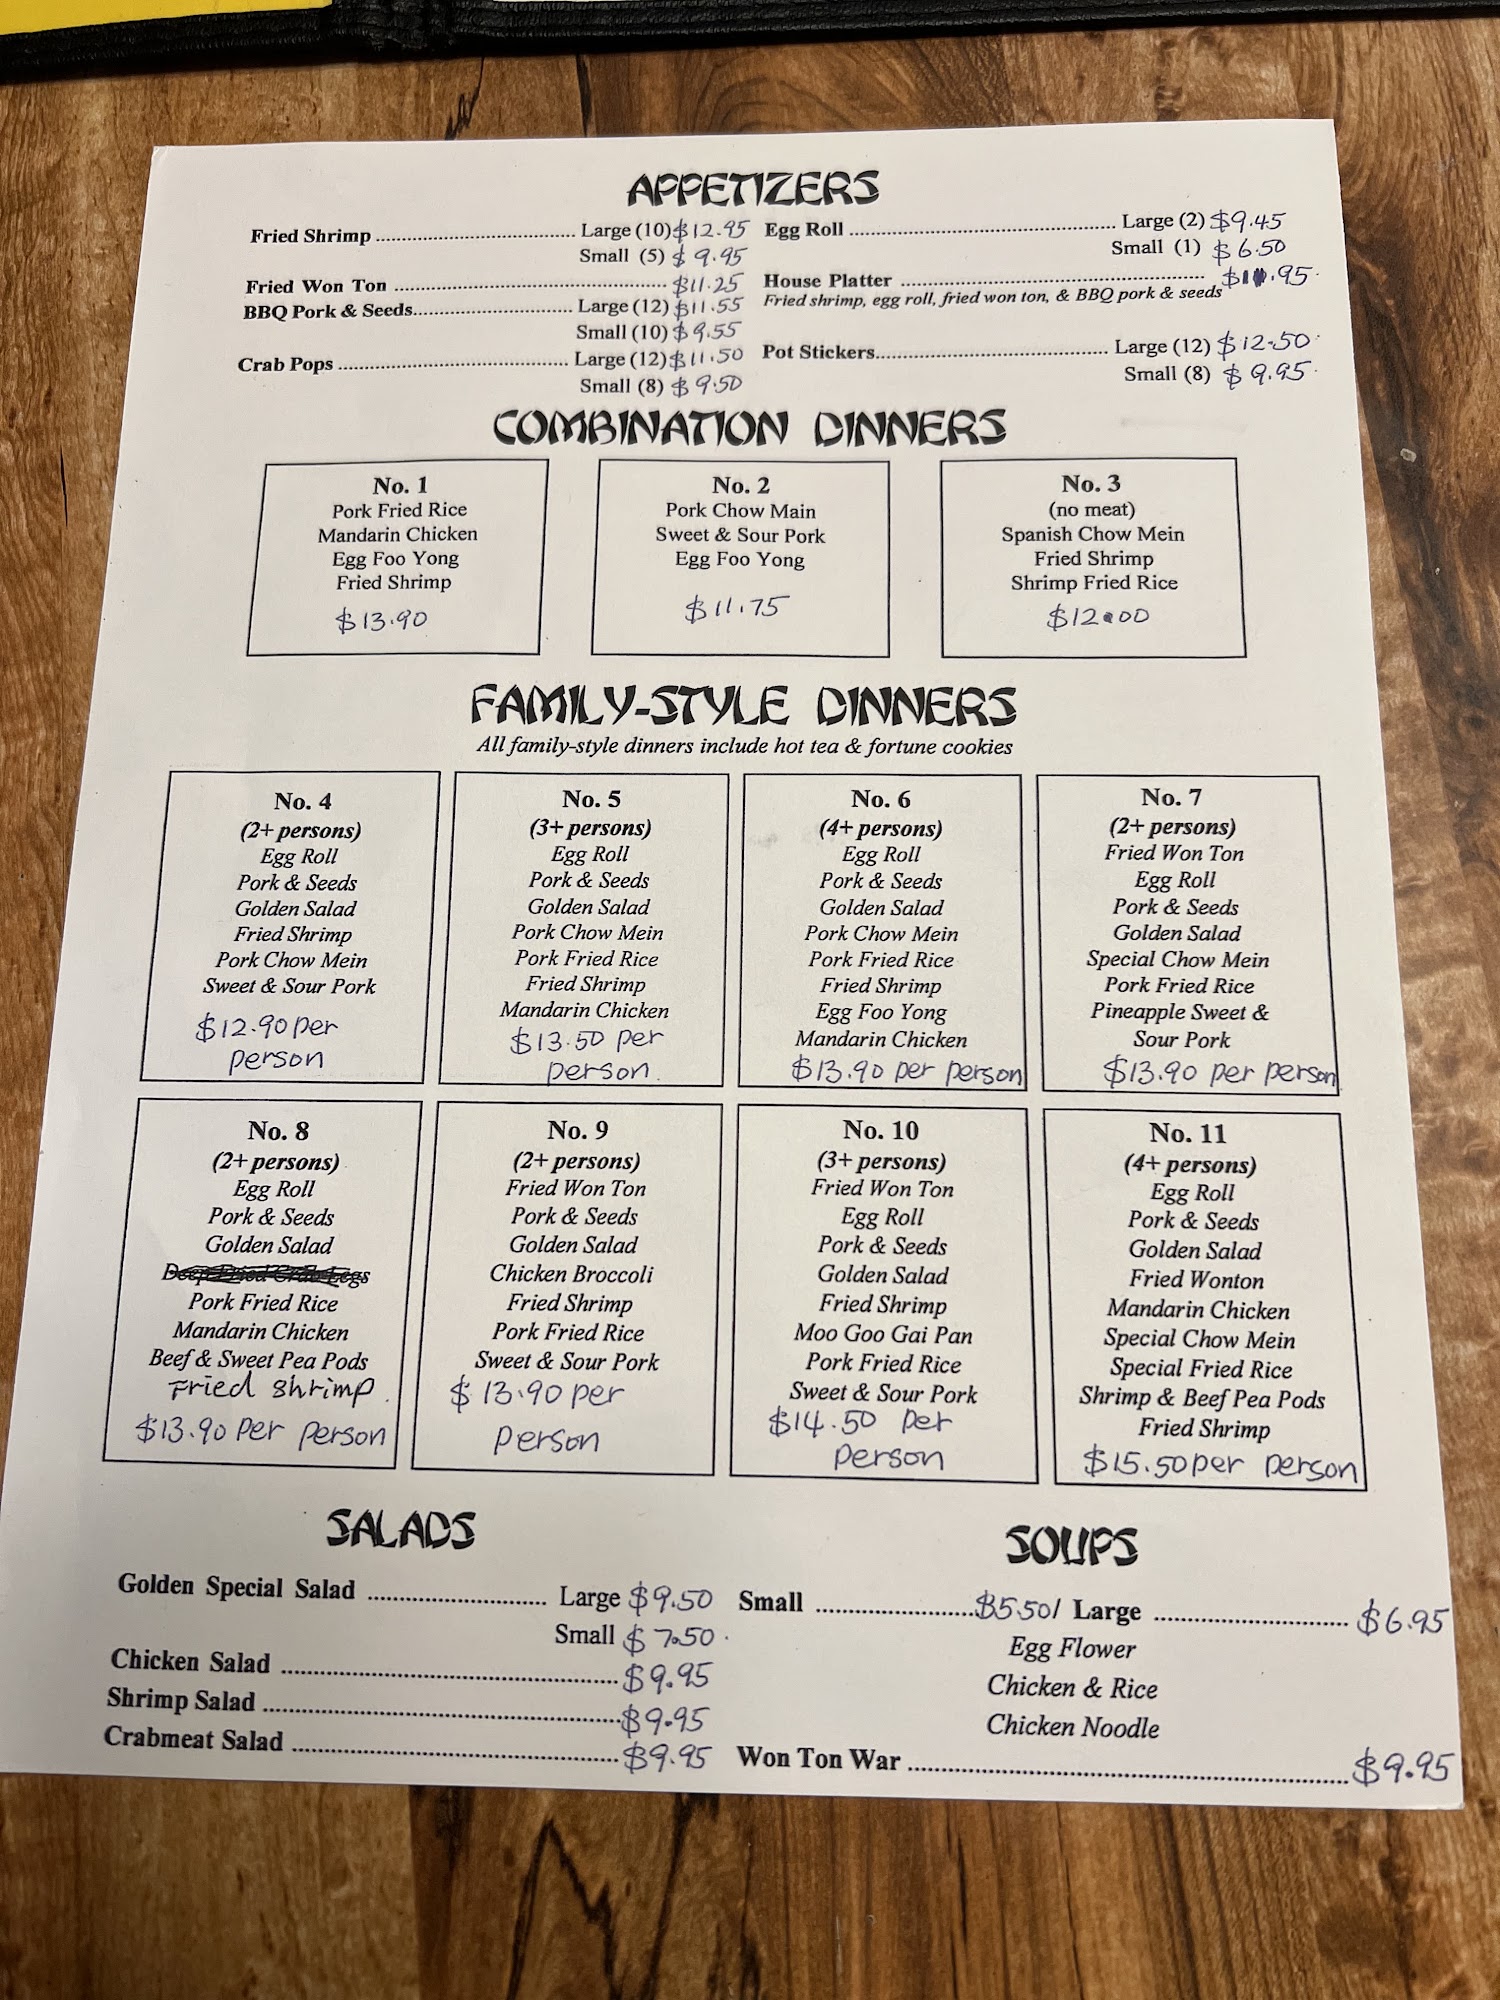 APPETIZERS
Fried Shrimp ........ Large (10) $12.95
Small (5) $9.95
Fried Won Ton ........ $11.25
BBQ Pork & Seeds ........ Large (12) $11.55
Small (10) $9.55
Crab Pops ........ Large (12) $11.50
Small (8) $9.50
Egg Roll ........ Large (2) $9.45
Small (1) $6.50
House Platter ........
Fried shrimp, egg roll, fried won ton, & BBQ pork & seeds
Pot Stickers ........ Large (12) $12.50
Small (8) $9.95
COMBINATION DINNERS
No. 1
Pork Fried Rice
Mandarin Chicken
Egg Foo Yong
Fried Shrimp
$13.90
No. 2
Pork Chow Main
Sweet & Sour Pork
Egg Foo Yong
$11.75
No. 3
(no meat)
Spanish Chow Mein
Fried Shrimp
Shrimp Fried Rice
$12.00
FAMILY-STYLE DINNERS
All family-style dinners include hot tea & fortune cookies
No. 4
(2+ persons)
Egg Roll
Pork & Seeds
Golden Salad
Fried Shrimp
Pork Chow Mein
Sweet & Sour Pork
$12.90 per
person
No. 5
(3+ persons)
Egg Roll
Pork & Seeds
Golden Salad
Pork Chow Mein
Pork Fried Rice
Fried Shrimp
Mandarin Chicken
$13.50 per
person
No. 6
(4+ persons)
Egg Roll
Pork & Seeds
Golden Salad
Pork Chow Mein
Pork Fried Rice
Fried Shrimp
Egg Foo Yong
Mandarin Chicken
$13.90 per person
No. 7
(2+ persons)
Fried Won Ton
Egg Roll
Pork & Seeds
Golden Salad
Special Chow Mein
Pork Fried Rice
Pineapple Sweet &
Sour Pork
$13.90 per person
No. 8
(2+ persons)
Egg Roll
Pork & Seeds
Golden Salad
Deep Fried Crab Legs
Pork Fried Rice
Mandarin Chicken
Beef & Sweet Pea Pods
Fried shrimp
$13.90 per person
No. 9
(2+ persons)
Fried Won Ton
Pork & Seeds
Golden Salad
Chicken Broccoli
Fried Shrimp
Pork Fried Rice
Sweet & Sour Pork
$13.90 per
person
No. 10
(3+ persons)
Fried Won Ton
Egg Roll
Pork & Seeds
Golden Salad
Fried Shrimp
Moo Goo Gai Pan
Pork Fried Rice
Sweet & Sour Pork
$14.50 per
person
No. 11
(4+ persons)
Egg Roll
Pork & Seeds
Golden Salad
Fried Wonton
Mandarin Chicken
Special Chow Mein
Special Fried Rice
Shrimp & Beef Pea Pods
Fried Shrimp
$15.50 per person
SALADS
Golden Special Salad ........ Large $9.50
Small $7.50
Chicken Salad ........ $9.95
Shrimp Salad ........ $9.95
Crabmeat Salad ........ $9.95
SOUPS
Small ........ $5.50/ Large ........ $6.95
Egg Flower
Chicken & Rice
Chicken Noodle
Won Ton War ........ $9.95